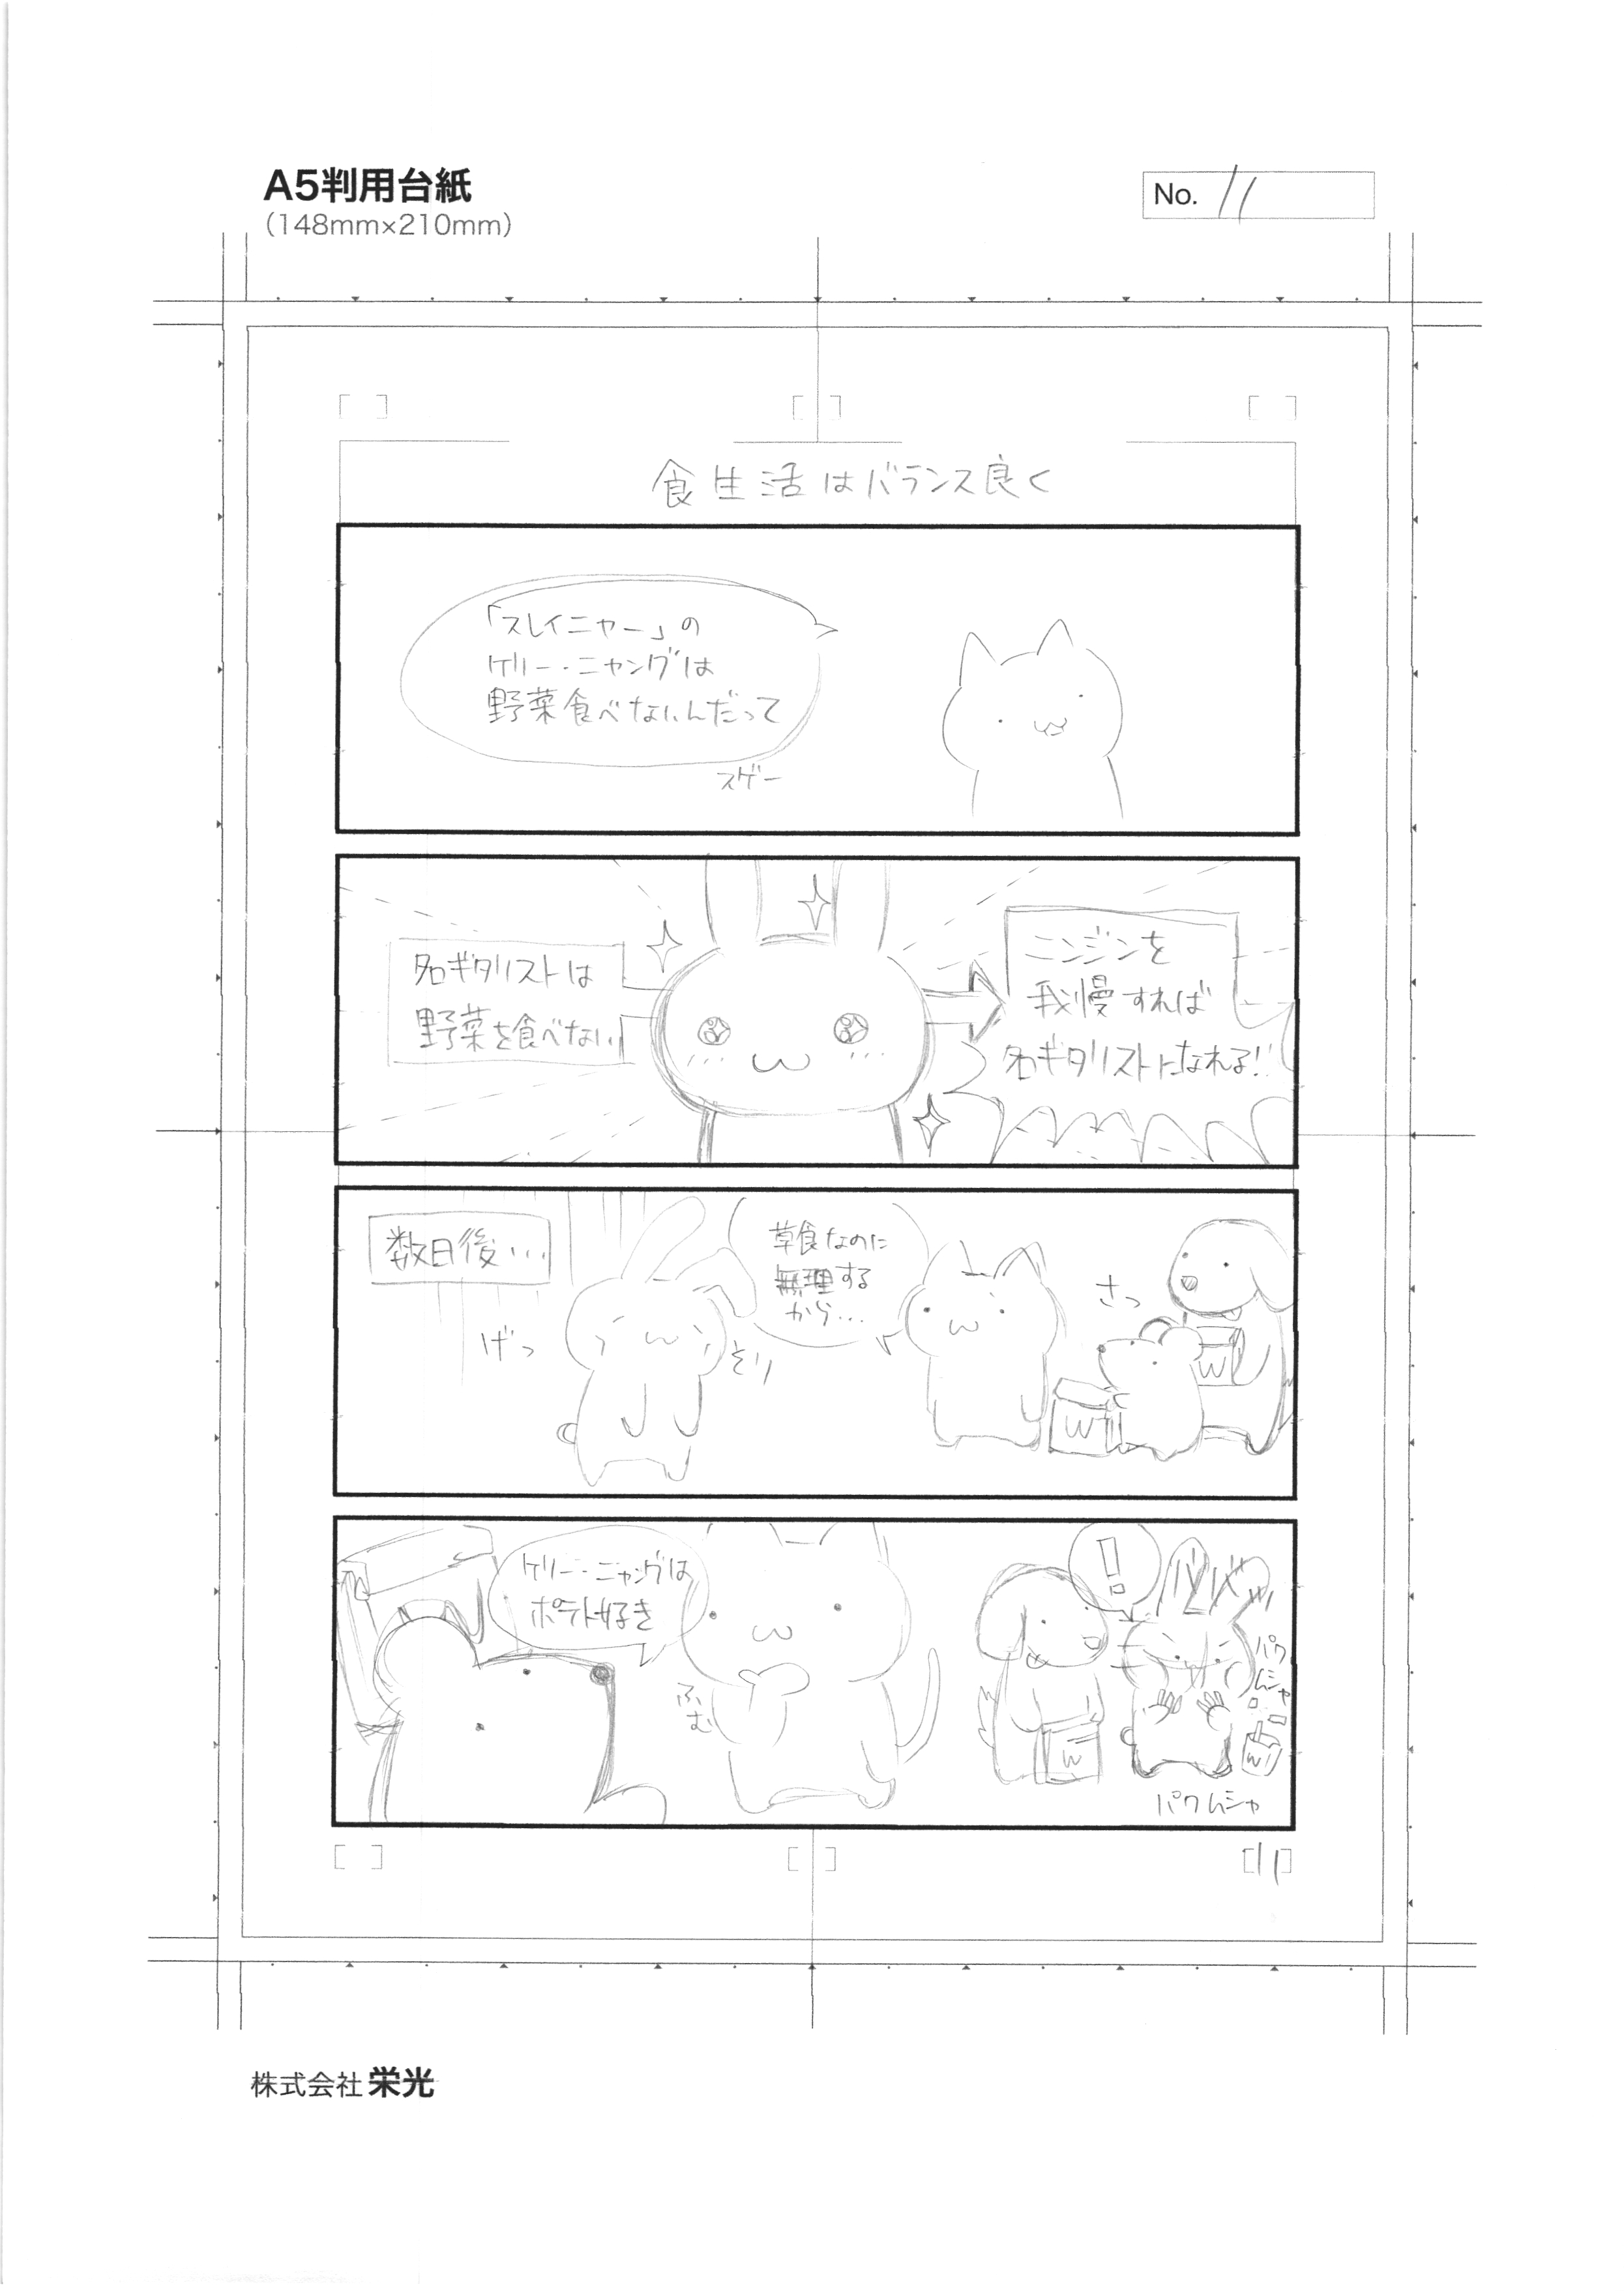 A5判用台紙
(148mm×210mm)
No. 11
食生活はバランス良く
「スレイニャー」の
ケリー・ニャングは
野菜食べないんだって
スゲー
名ギタリストは
野菜を食べない
ニンジンを
我慢すれば
名ギタリストになれる!!
数日後...
げっ
そり
草食なのに
無理する
から...
さっ
W
W
ケリー・ニャングは
ポテト好き
ふむ
!
バババッ
パクムシャ
W
W
パクムシャ
11
株式会社 栄光